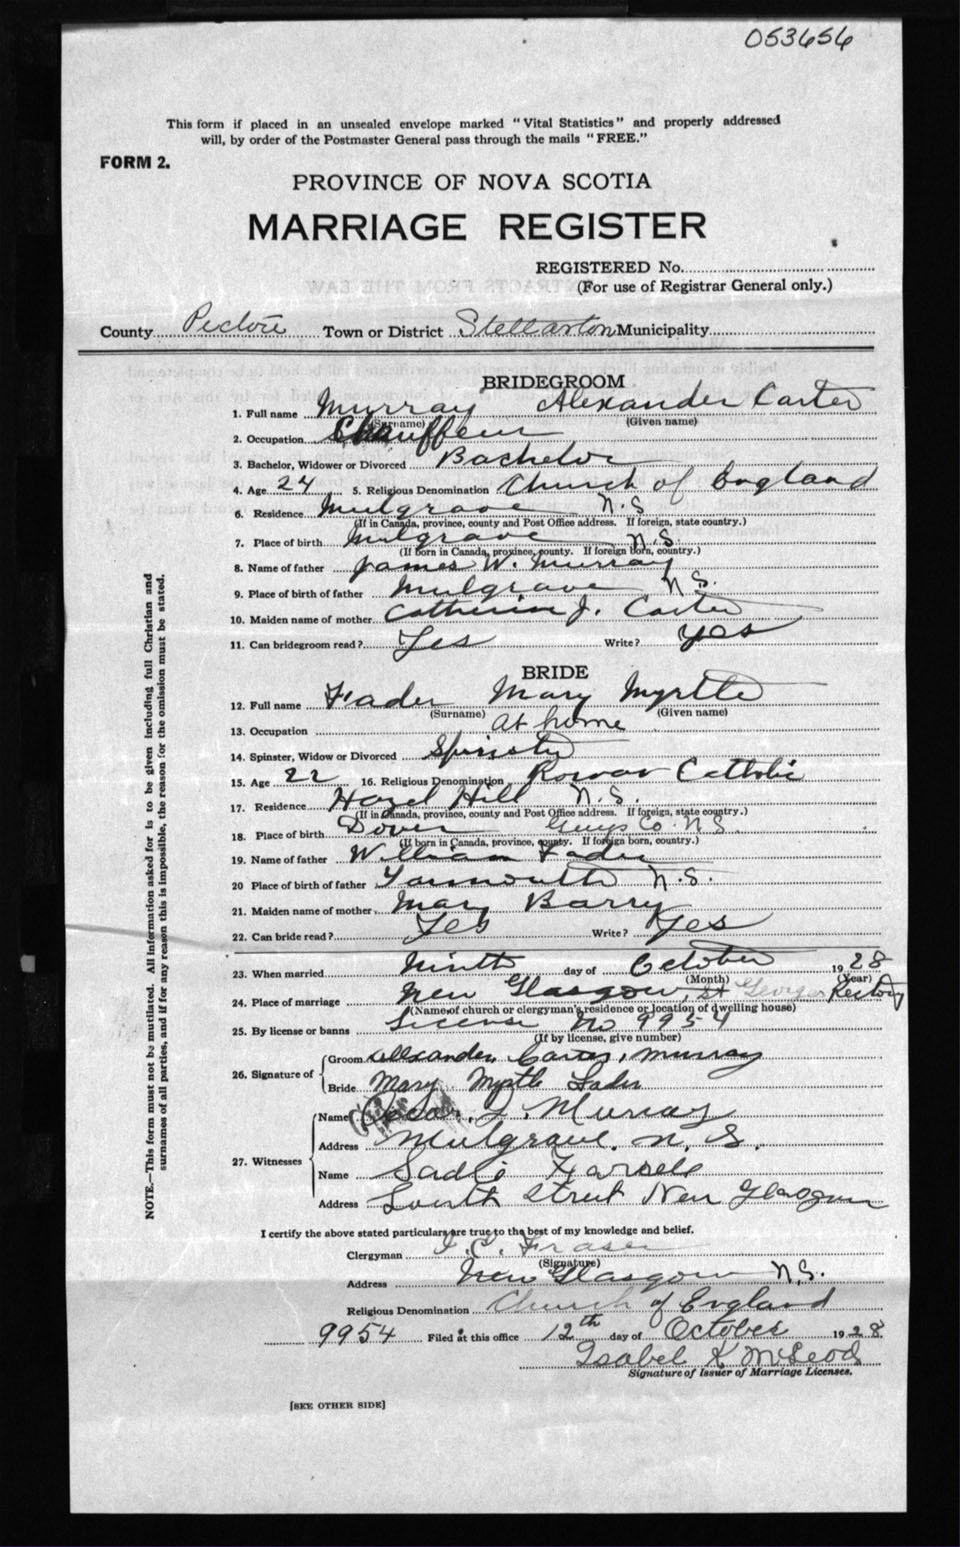 053656
This form if placed in an unsealed envelope marked "Vital Statistics" and properly addressed
will, by order of the Postmaster General pass through the mails "FREE."
FORM 2.
PROVINCE OF NOVA SCOTIA
MARRIAGE REGISTER
REGISTERED No.
(For use of Registrar General only.)
County Pictou Town or District Stellarton Municipality
BRIDEGROOM
1. Full name Murray Alexander Carter
(Surname) (Given name)
2. Occupation Chauffeur
3. Bachelor, Widower or Divorced Bachelor
4. Age 24 5. Religious Denomination Church of England
6. Residence Mulgrave N.S
(If in Canada, province, county and Post Office address. If foreign, state country.)
7. Place of birth Mulgrave N.S.
(If born in Canada, province, county. If foreign born, country.)
8. Name of father James W. Murray
9. Place of birth of father Mulgrave N.S.
10. Maiden name of mother Catherine J. Carter
11. Can bridegroom read? Yes Write? Yes
BRIDE
12. Full name Fader Mary Myrtle
(Surname) (Given name)
13. Occupation at home
14. Spinster, Widow or Divorced Spinster
15. Age 22 16. Religious Denomination Roman Catholic
17. Residence Hazel Hill N.S.
(If in Canada, province, county and Post Office address. If foreign, state country.)
18. Place of birth Dover Guys Co. N.S.
(If born in Canada, province, county. If foreign born, country.)
19. Name of father William Fader
20 Place of birth of father Yarmouth N.S.
21. Maiden name of mother Mary Barry
22. Can bride read? Yes Write? Yes
23. When married Ninth day of October 1928
(Month) (Year)
24. Place of marriage New Glasgow, St Georges Rectory
(Name of church or clergyman's residence or location of dwelling house)
25. By license or banns License No 9954
(If by license, give number)
26. Signature of
Groom Alexander Carter Murray
Bride Mary Myrtle Fader
27. Witnesses
Name J. Murray
Address Mulgrave. N. S.
Name Sadie
Address South Street New Glasgow
I certify the above stated particulars are true to the best of my knowledge and belief.
Clergyman Fraser
(Signature)
Address New Glasgow N.S.
Religious Denomination Church of England
9954 Filed at this office 12th day of October 1928
Isabel K McLeod
Signature of Issuer of Marriage Licenses.
[SEE OTHER SIDE]
NOTE.—This form must not be mutilated. All information asked for is to be given including full Christian and
surnames of all parties, and if for any reason this is impossible, the reason for the omission must be stated.